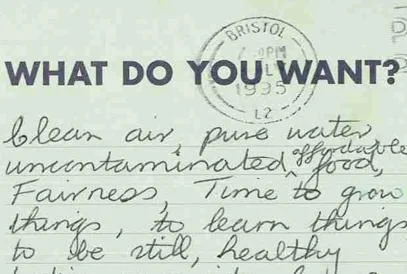 BRISTOL
PM
1995
L2
WHAT DO YOU WANT?
Clean air, pure water
uncontaminated affordable food,
Fairness, Time to grow
things, to learn things
to be still, healthy